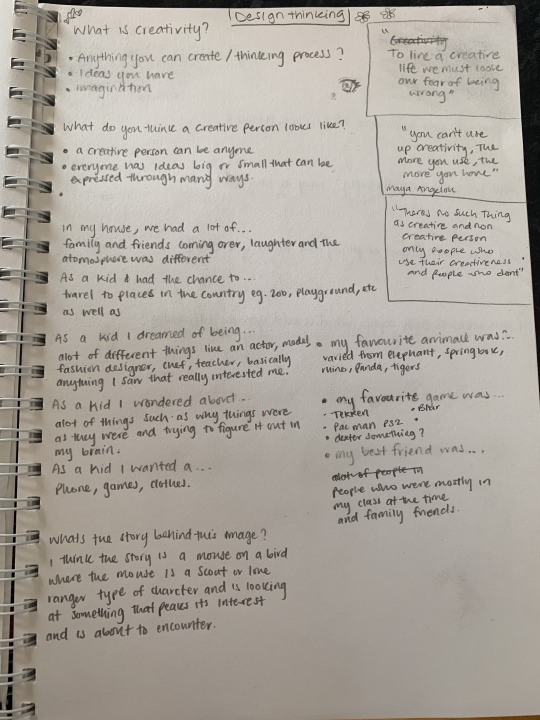 Design thinking
What is creativity?
• Anything you can create / thinking process?
• Ideas you have
• imagination
"Creativity
To live a creative
life we must lose
our fear of being
wrong"
What do you think a creative person looks like?
• a creative person can be anyone
• everyone has ideas big or small that can be
expressed through many ways.
"you can't use
up creativity, The
more you use, the
more you have"
maya Angelou
"Theres no such thing
as creative and non
creative person
only people who
use their creativeness
and people who dont"
In my house, we had a lot of...
family and friends coming over, laughter and the
atomosphere was different
As a kid I had the chance to...
travel to places in the country eg. zoo, playground, etc
as well as
As a kid I dreamed of being...
alot of different things like an actor, model,
fashion designer, chef, teacher, basically
anything I saw that really interested me.
As a kid I wondered about...
alot of things such as why things were
as they were and trying to figure it out in
my brain.
As a kid I wanted a...
Phone, games, clothes.
• my favourite animal was...
varied from elephant, springbok,
rhino, panda, tigers
• my favourite game was...
• Tekken
• Pac man PS2
• dexter something?
• my best friend was....
alot of people in
people who were mostly in
my class at the time
and family friends.
Whats the story behind this image?
I think the story is a mouse on a bird
where the mouse is a scout or lone
ranger type of charcter and is looking
at something that peaks its interest
and is about to encounter.